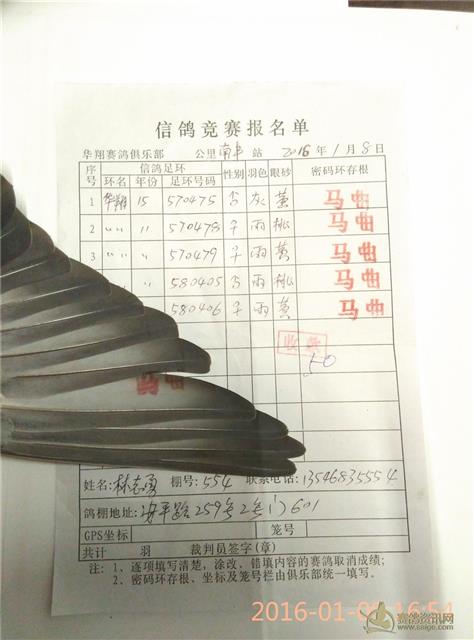 信鸽竞赛报名单
华翔赛鸽俱乐部 公里 南丰 站 2016年1月8日
序号 信鸽足环 性别 羽色 眼砂 密码环存根
环名 年份 足环号码
1 华翔 15 570475 灰 黄 马
2 〃〃 〃 570478 雨 桃 马
3 〃 570479 雨 黄 马
〃 580405 雨 桃 马
580406 雨 黄 马
收费
50
马
姓名: 林志勇 棚号: 554 联系电话: 13546835554
鸽棚地址: 安平路259号2号门601
GPS坐标 笼号
共计 羽 裁判员签字(章)
注: 1、逐项填写清楚，涂改、错填内容的赛鸽取消成绩；
2、密码环存根、坐标及笼号栏由俱乐部统一填写。
2016-01-0 16:54
赛鸽资讯网
www.saige.com